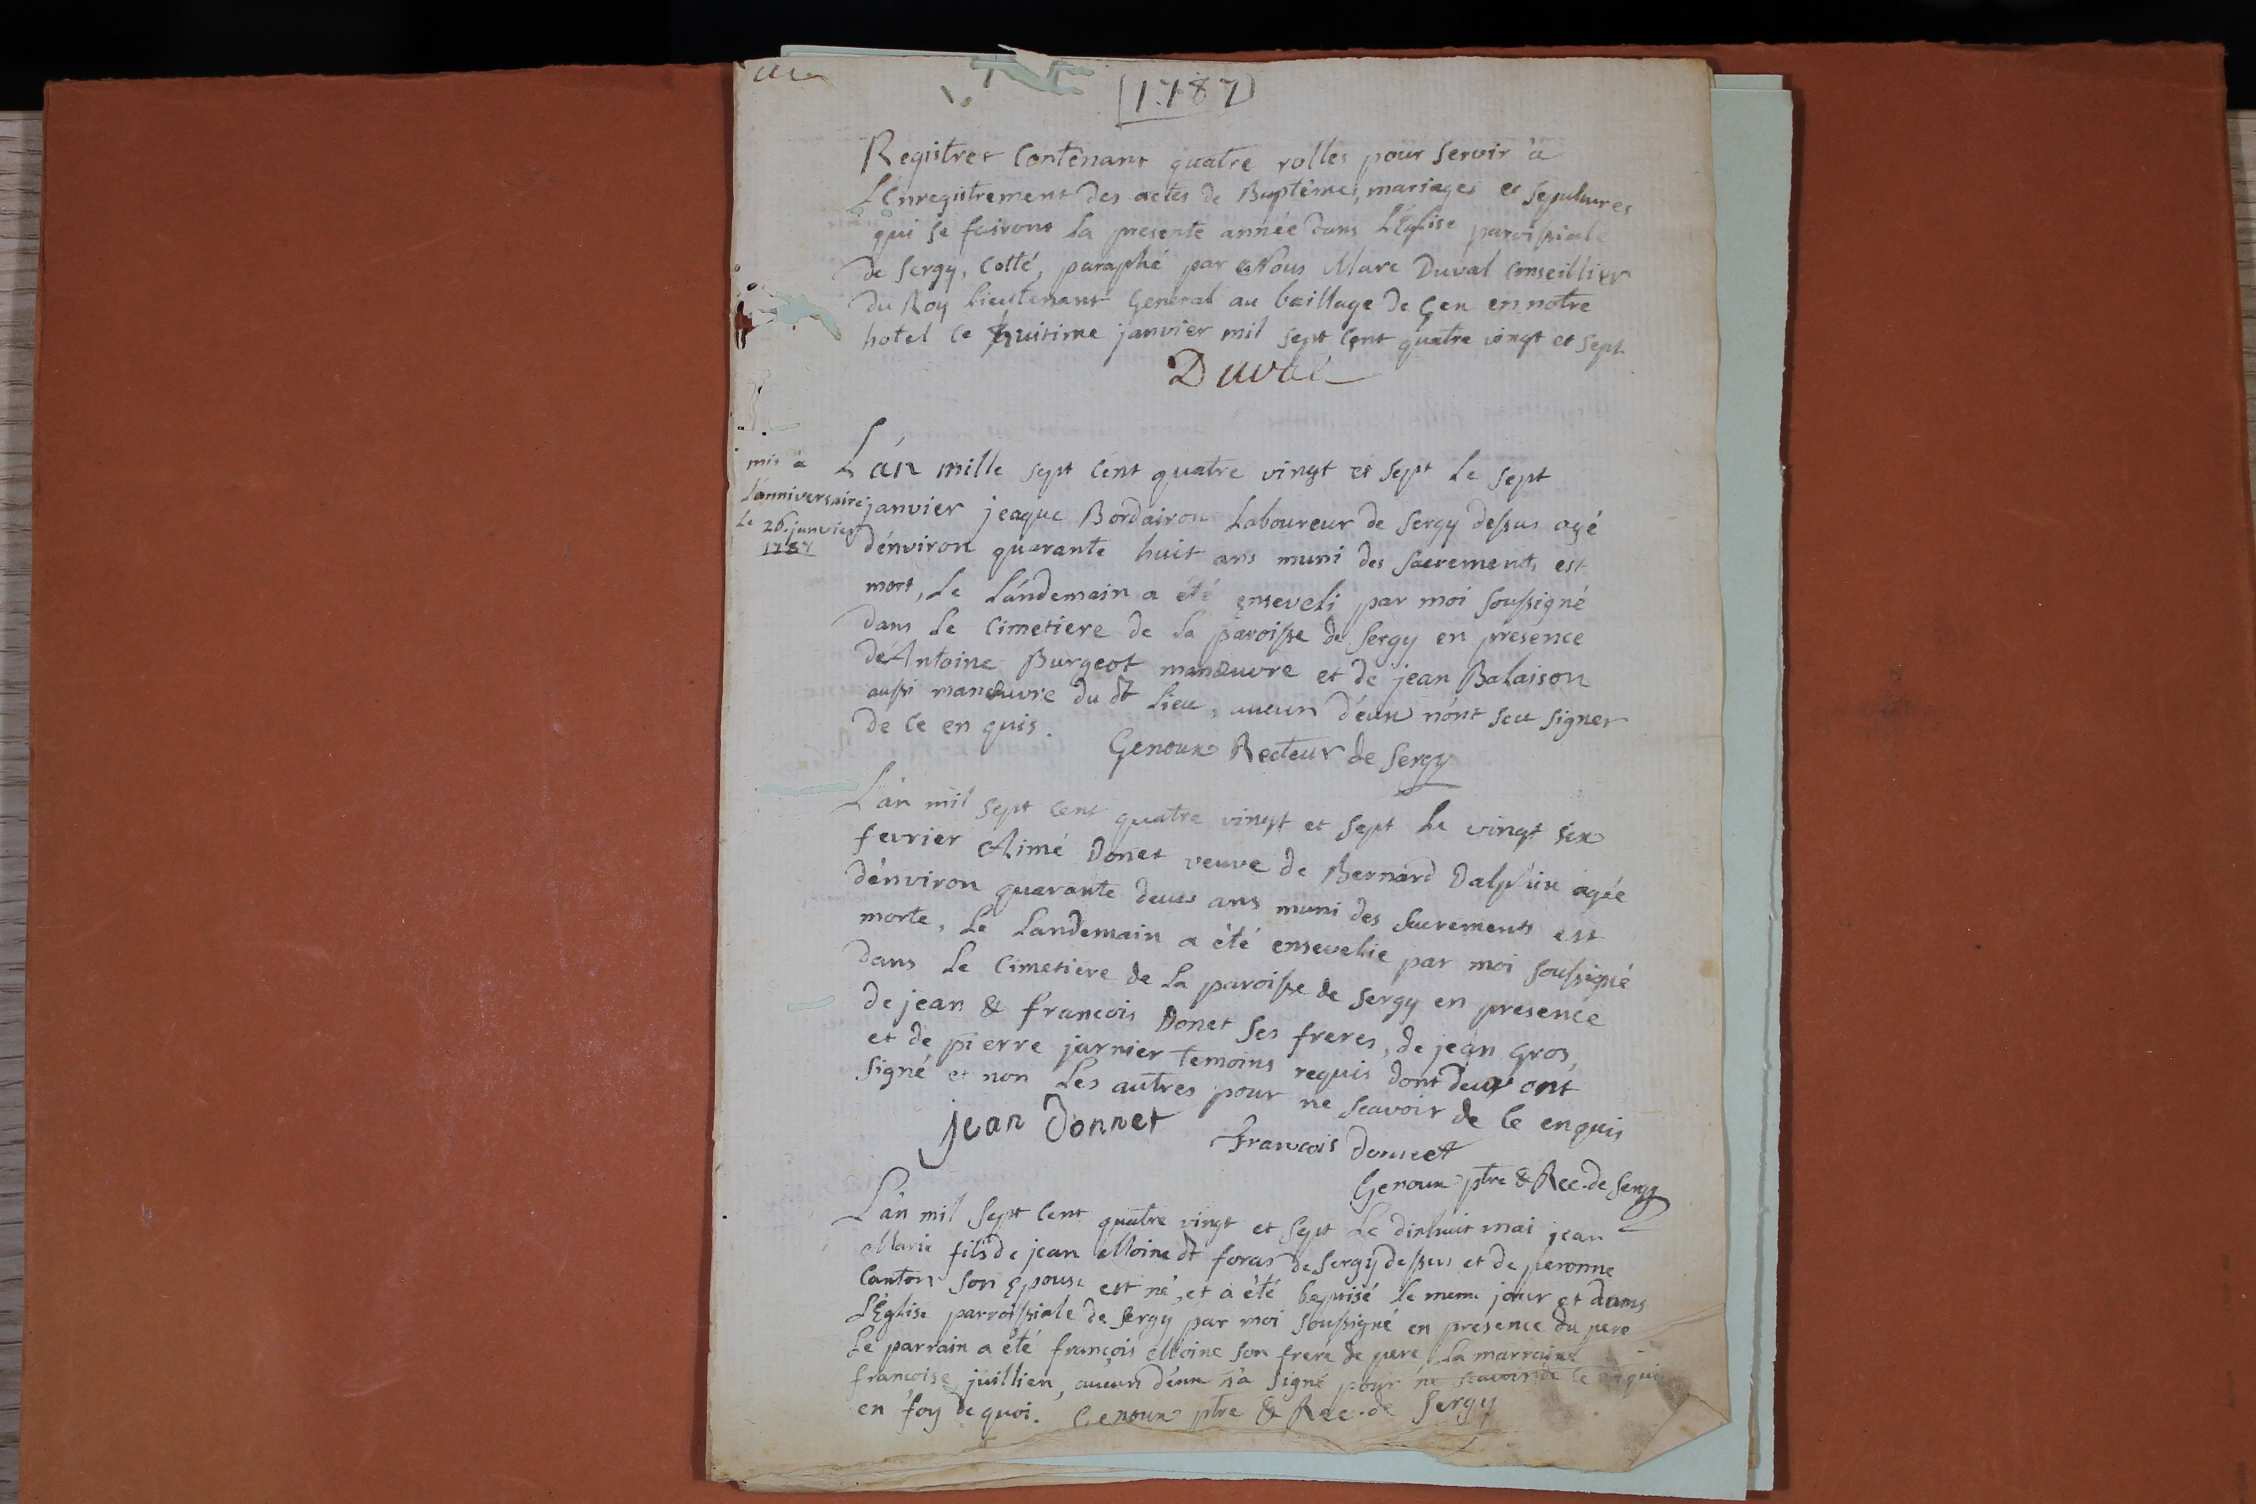 1787
Registres Contenant quatre rolles pour Servir à
L'Enregistrement des actes de Baptême, mariages et Sepultures
qui se fairont La presente année dans L'Eglise paroissiale
de Sergy, Cotté, paraphé par Nous Marc Duval Conseillier
du Roy Lieutenant General au baillage de Gex en notre
hotel ce huitime janvier mil sept Cent quatre vingt et sept
Duval
mis à
L'anniversaire
Le 26 janvier
1787
L'an mille sept Cent quatre vingt et sept Le sept
janvier jeaque Bordairon Laboureur de Sergy dessus agé
d'énviron quarante huit ans muni des Sacrements est
mort, Le Landemain a été enseveli par moi Soussigné
dans Le Cimetiere de La paroisse de Sergy en presence
de Antoine Burgeot manœuvre et de jean Balaison
aussi manœuvre du dt Lieu, aucun d'eux n'ont sceu signer
de ce en quis.
Genoux Recteur de Sergy
L'an mil sept Cent quatre vingt et sept Le vingt six
fevrier Aimé Donet veuve de Bernard Dalphin agée
d'énviron quarante deux ans muni des Sacrements est
morte, Le Landemain a été ensevelie par moi Soussigné
dans Le Cimetiere de La paroisse de Sergy en presence
de jean & francois Donet Ses freres, de jean Gros,
et de pierre jarnier temoins requis dont deux ont
Signé et non Les autres pour ne Scavoir de Ce enquis
jean Donnet
Francois donnet
Genoux ptre & Rec. de Sergy
L'an mil sept Cent quatre vingt et sept Le dixhuit mai jean
Marie fils de jean Moine dt foras de Sergy dessus et de peronne
Canton Son Epouse est né, et a été baptisé Le meme jour et dans
L'Eglise parroissiale de Sergy par moi Soussigné en presence du pere
Le parrain a été françois Moine Son frere de pere La marraine
francoise juillien, aucun d'eux n'a Signé pour ne Scavoir de Ce enquis
en foy de quoi. Genoux ptre & Rec. de Sergy